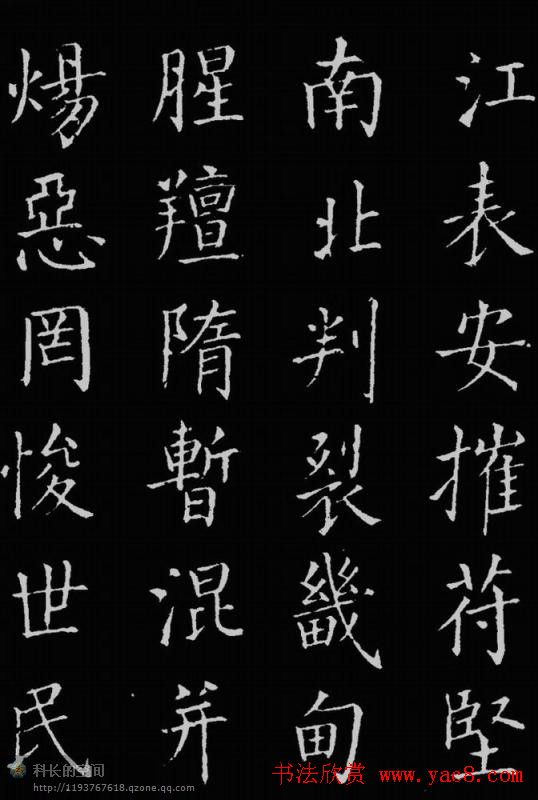 江表安摧苻堅
南北判裂畿甸
腥羶隋暫混并
煬惡罔悛世民
科长的空间
http://1193767618.qzone.qq.com
书法欣赏 www.yac8.com